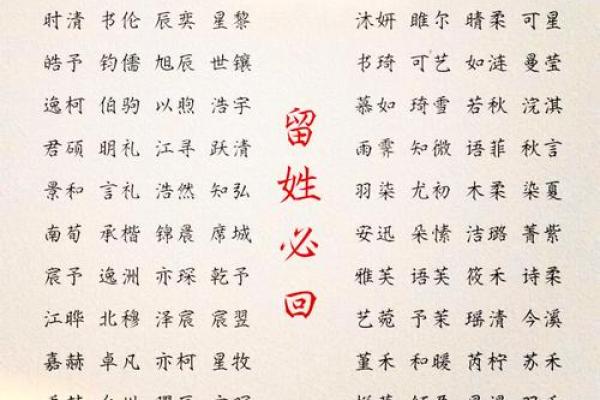 时清 书伦 辰奕 星黎
皓予 钧儒 旭辰 世镶
逸柯 伯驹 以煦 浩宇
君硕 明礼 江寻 跃清
景和 言礼 浩然 知弘
南荀 承楷 锦晨 席城
宸予 逸洲 亦琛 乾予
江晔 北穆 泽宸 宸翌
嘉赫 卓凡 亦柯 星牧
留姓必回
沐妍 雎尔 晴柔 可星
书琦 可艺 如涟 曼莹
慕如 琦雪 若秋 浣淇
雨霁 知微 语菲 秋言
羽染 尤初 木柔 染夏
安迅 朵愫 洁璐 菁紫
雅芙 语芙 筱禾 诗柔
艺菀 予茉 瑶清 今溪
堇禾 和暖 芮柠 苏禾